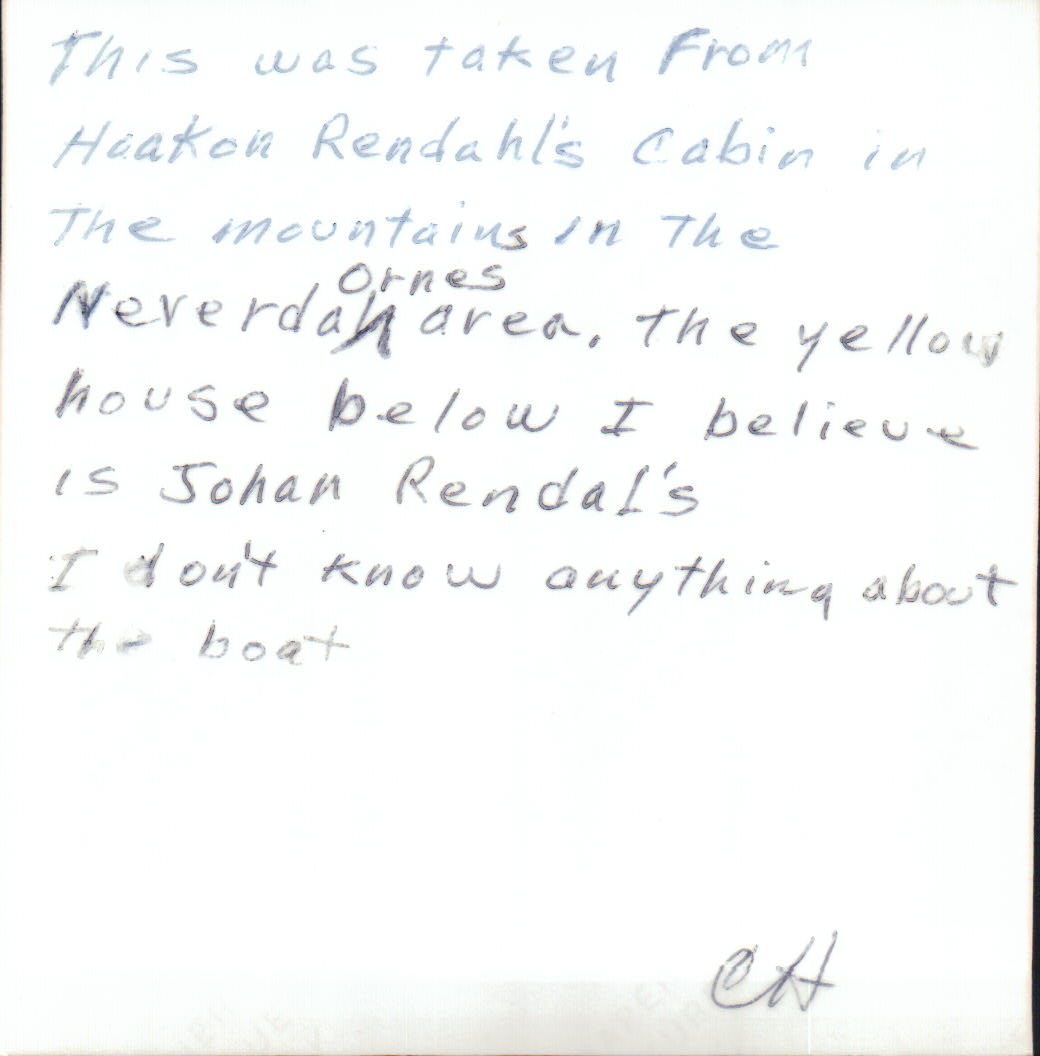 This was taken From
Haakon Rendahl's Cabin in
The mountains in The
Ornes
Neverdah area. The yellow
house below I believe
is Johan Rendal's
I don't know anything about
the boat
CH